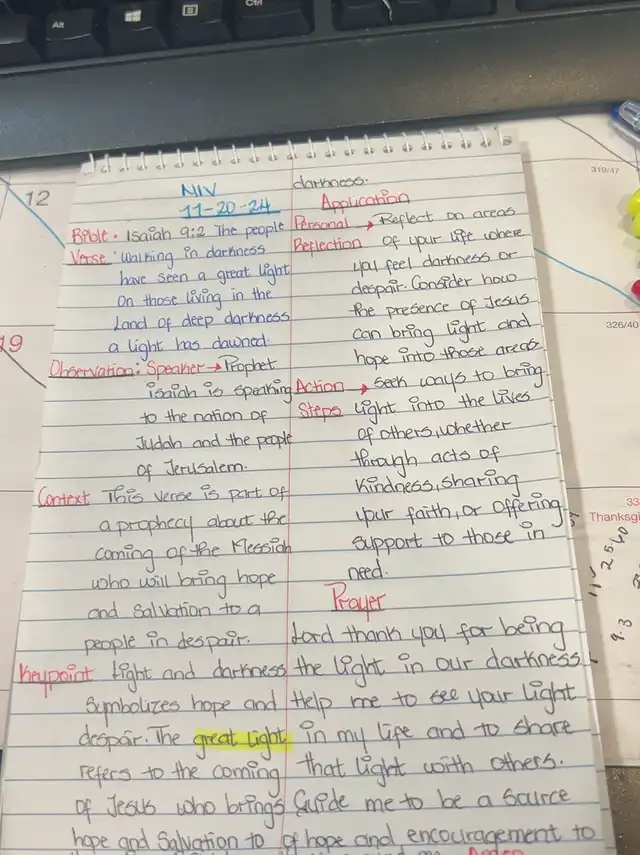 Alt
Ctrl
12
19
319/47
326/40
33
Thanksgi
25 40
9.3
NIV
11-20-24
Bible • Isaiah 9:2 The people
Verse • walking in darkness
have seen a great light
on those living in the
land of deep darkness
a light has dawned.
Observation: Speaker → Prophet
isaiah is speaking
to the nation of
Judah and the people
of Jerusalem.
Context This verse is part of
a prophecy about the
coming of the Messiah
who will bring hope
and salvation to a
people in despair.
Keypoint Light and darkness
symbolizes hope and
despair. The great light
refers to the coming
of Jesus who brings
hope and salvation to
darkness.
Application
Personal → Reflect on areas
Reflection of your life where
you feel darkness or
despair. Consider how
the presence of Jesus
can bring light and
hope into those areas
Action → Seek ways to bring
Steps light into the lives
of others, whether
through acts of
kindness, sharing
your faith, or offering
support to those in
need.
Prayer
Lord thank you for being
the light in our darkness
Help me to see your light
in my life and to share
that light with others.
Guide me to be a source
of hope and encouragement to